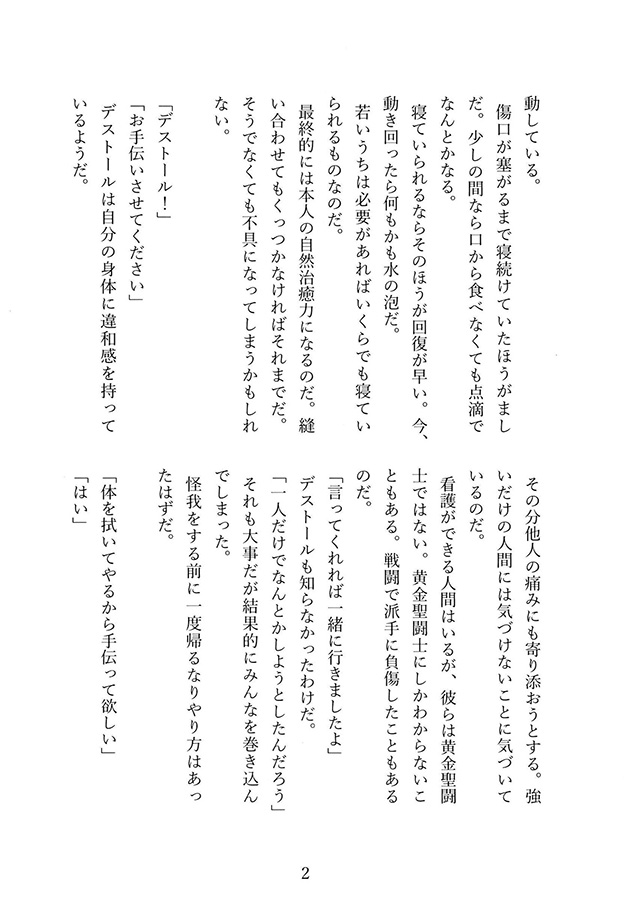 動している。
　傷口が塞がるまで寝続けていたほうがまし
だ。少しの間なら口から食べなくても点滴で
なんとかなる。
　寝ていられるならそのほうが回復が早い。今、
動き回ったら何もかも水の泡だ。
　若いうちは必要があればいくらでも寝てい
られるものなのだ。
　最終的には本人の自然治癒力になるのだ。縫
い合わせてもくっつかなければそれまでだ。
そうでなくても不具になってしまうかもしれ
ない。
「デストール！」
「お手伝いさせてください」
　デストールは自分の身体に違和感を持って
いるようだ。
　その分他人の痛みにも寄り添おうとする。強
いだけの人間には気づけないことに気づいて
いるのだ。
　看護ができる人間はいるが、彼らは黄金聖闘
士ではない。黄金聖闘士にしかわからないこ
ともある。戦闘で派手に負傷したこともある
のだ。
「言ってくれれば一緒に行きましたよ」
　デストールも知らなかったわけだ。
「一人だけでなんとかしようとしたんだろう」
　それも大事だが結果的にみんなを巻き込ん
でしまった。
　怪我をする前に一度帰るなりやり方はあっ
たはずだ。
「体を拭いてやるから手伝って欲しい」
「はい」
2